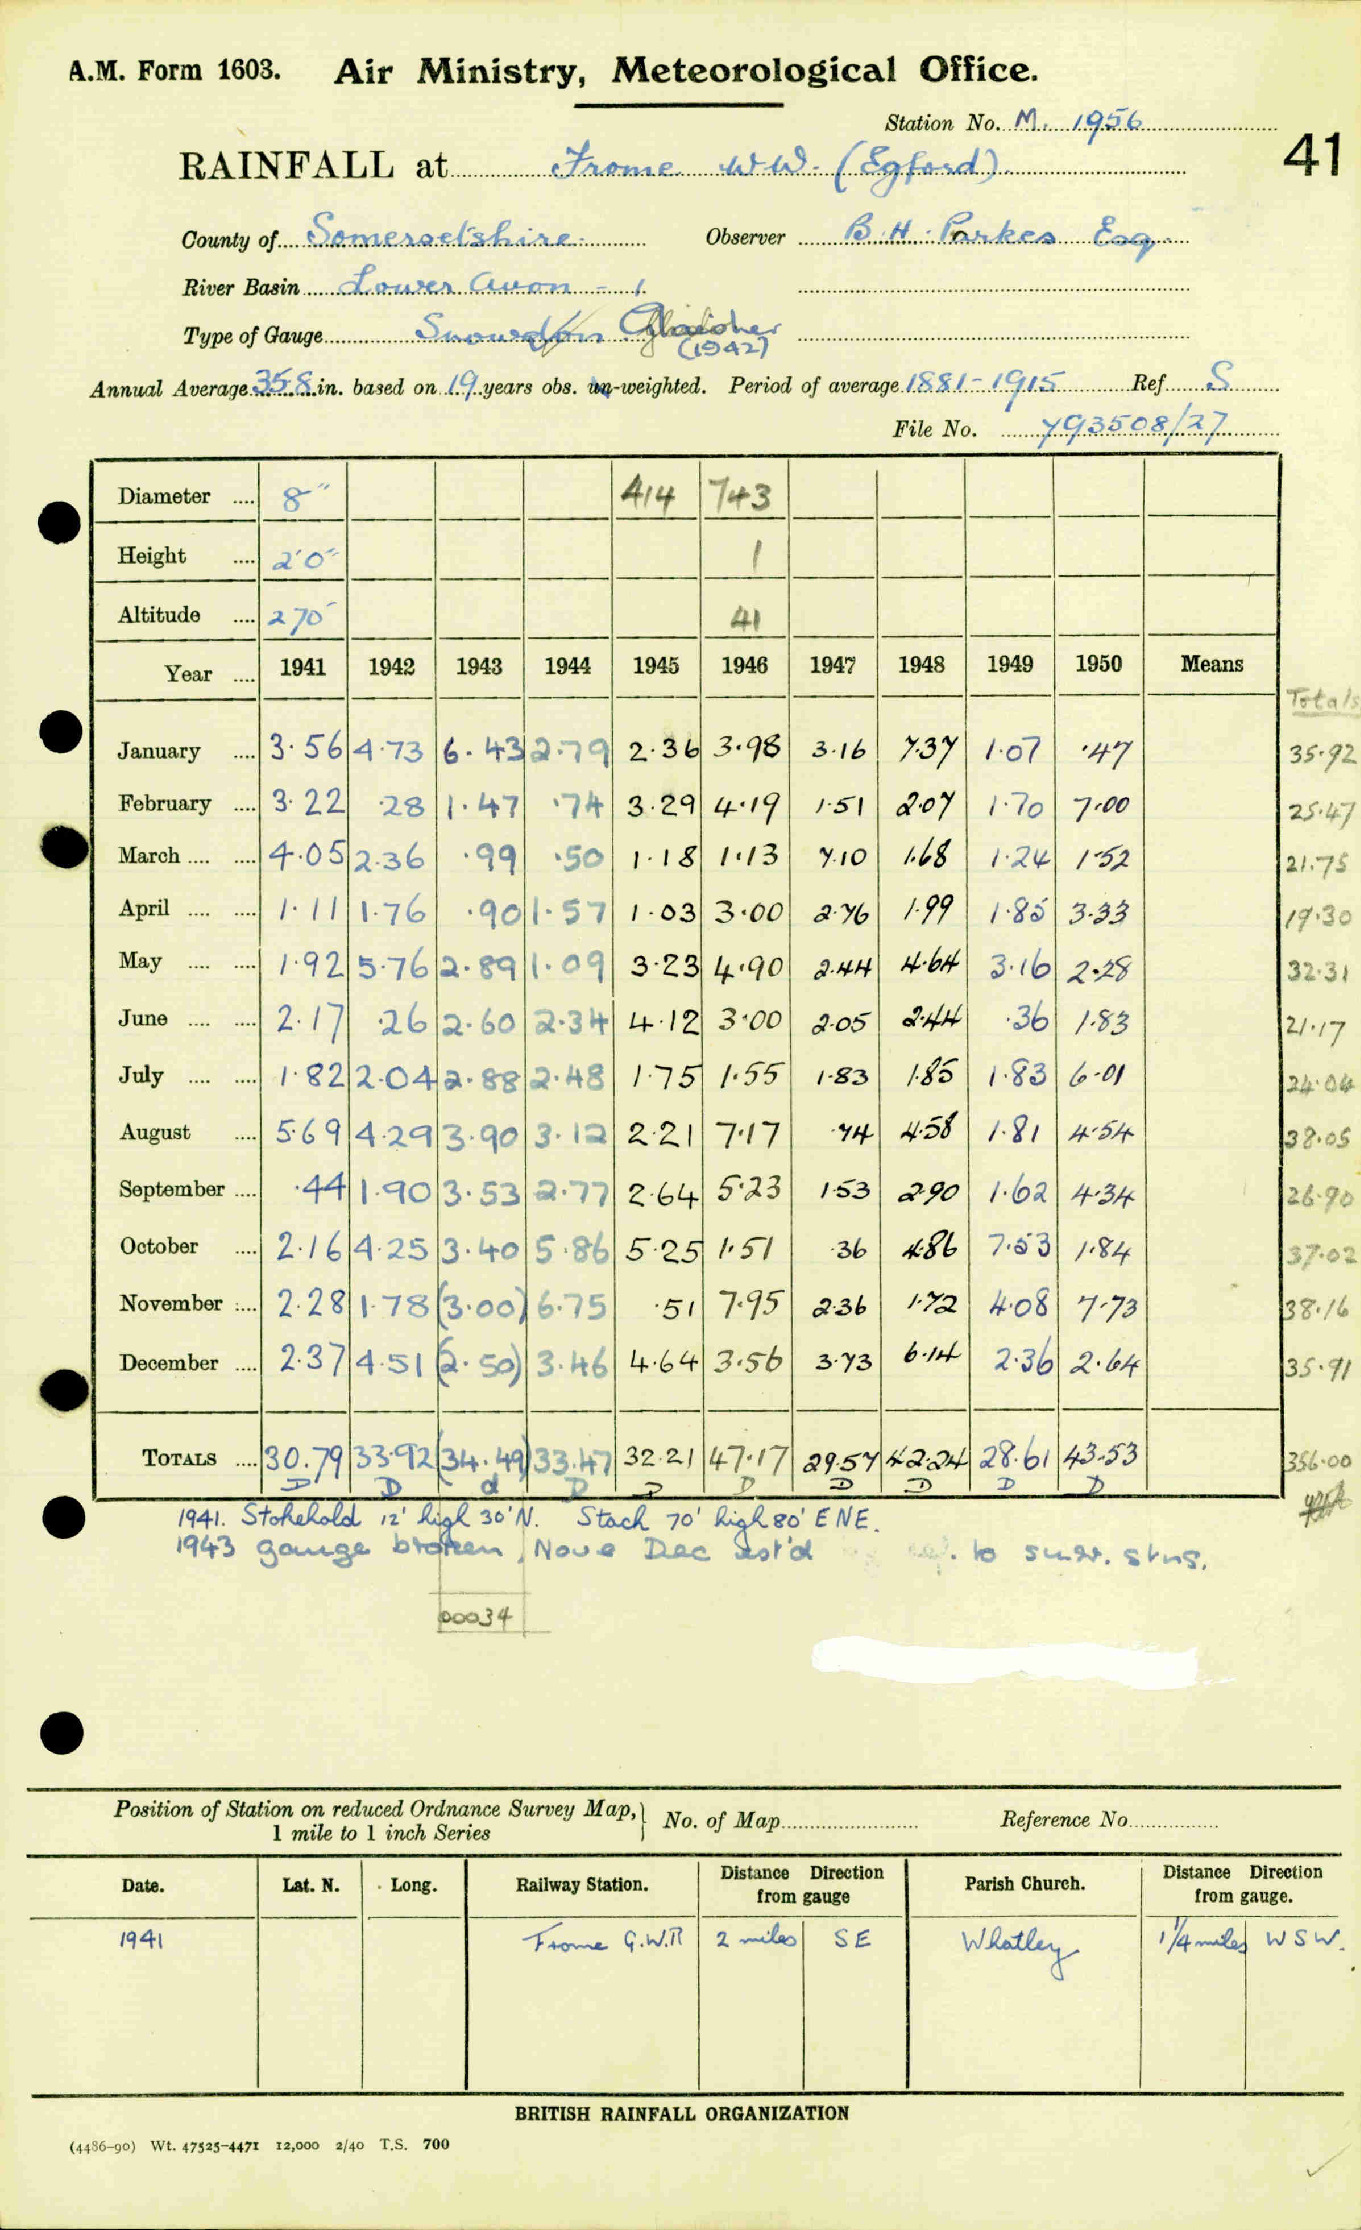 A.M. Form 1603. Air Ministry, Meteorological Office.
Station No. M. 1956
41
RAINFALL at Frome W.W. (Egford)
County of Somersetshire Observer B.H. Parkes Esq.
River Basin Lower Avon - 1
Type of Gauge Snowdon Glaisher
(1942)
Annual Average 35.8 in. based on 19 years obs. un-weighted. Period of average 1881-1915 Ref. S
File No. 793508/27
Diameter .... 8" 414 743
Height .... 2'0" 1
Altitude .... 270' 41
Year .... 1941 1942 1943 1944 1945 1946 1947 1948 1949 1950 Means
Totals
January .... 3.56 4.73 6.43 2.79 2.36 3.98 3.16 7.37 1.07 .47 35.92
February .... 3.22 .28 1.47 .74 3.29 4.19 1.51 2.07 1.70 7.00 25.47
March .... .... 4.05 2.36 .99 .50 1.18 1.13 7.10 1.68 1.24 1.52 21.75
April .... .... 1.11 1.76 .90 1.57 1.03 3.00 2.76 1.99 1.85 3.33 19.30
May .... .... 1.92 5.76 2.89 1.09 3.23 4.90 2.44 4.64 3.16 2.28 32.31
June .... .... 2.17 .26 2.60 2.34 4.12 3.00 2.05 2.44 .36 1.83 21.17
July .... .... 1.82 2.04 2.88 2.48 1.75 1.55 1.83 1.85 1.83 6.01 24.04
August .... 5.69 4.29 3.90 3.12 2.21 7.17 .74 4.58 1.81 4.54 38.05
September .... .44 1.90 3.53 2.77 2.64 5.23 1.53 2.90 1.62 4.34 26.90
October .... 2.16 4.25 3.40 5.86 5.25 1.51 .36 4.86 7.53 1.84 37.02
November .... 2.28 1.78 (3.00) 6.75 .51 7.95 2.36 1.72 4.08 7.73 38.16
December .... 2.37 4.51 (2.50) 3.46 4.64 3.56 3.73 6.14 2.36 2.64 35.91
TOTALS .... 30.79 33.92 (34.49) 33.47 32.21 47.17 29.57 42.24 28.61 43.53 356.00
D D d D D D D D D D
1941. Stokehold 12' high 30' N. Stack 70' high 80' ENE.
1943 gauge broken, Nov & Dec est'd to surr. stns.
00034
Position of Station on reduced Ordnance Survey Map, 1 mile to 1 inch Series No. of Map Reference No.
Date. Lat. N. Long. Railway Station. Distance Direction from gauge Parish Church. Distance Direction from gauge.
1941 Frome G.W.R 2 miles SE Whatley 1 1/4 miles WSW.
BRITISH RAINFALL ORGANIZATION
(4486-90) Wt. 47525-4471 12,000 2/40 T.S. 700